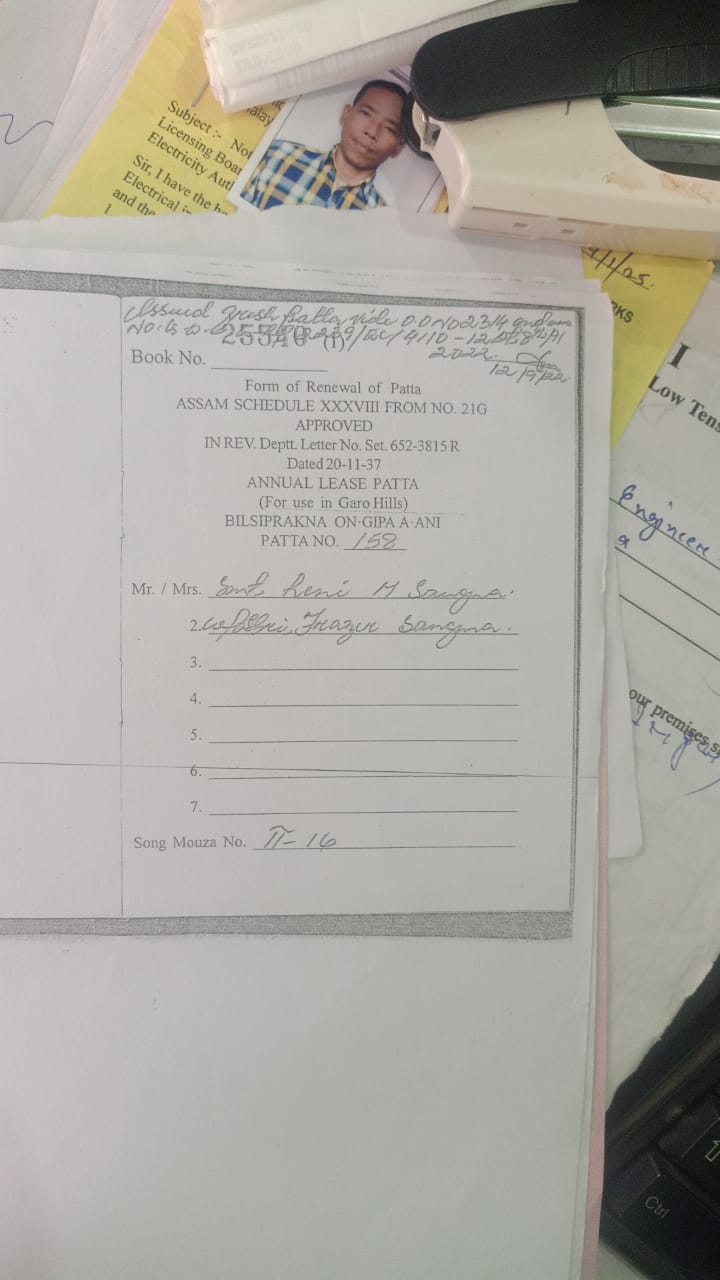 Subject :- Not
Licensing Boar
Electricity Aut
Sir, I have the h
Electrical i
and the
1.
Issued fresh Patta vide
25546 (1)
2022.
12/9/22
Book No.
Form of Renewal of Patta
ASSAM SCHEDULE XXXVIII FROM NO. 21G
APPROVED
IN REV. Deptt. Letter No. Set. 652-3815 R
Dated 20-11-37
ANNUAL LEASE PATTA
(For use in Garo Hills)
BILSIPRAKNA ON·GIPA A·ANI
PATTA NO. 158
Mr. / Mrs. Smt. Reni M Sangma.
2. Frazer Sangma.
3.
4.
5.
6.
7.
Song Mouza No. II-16
RKS
I
Low Tens
Engineer
our premises s
Ctrl